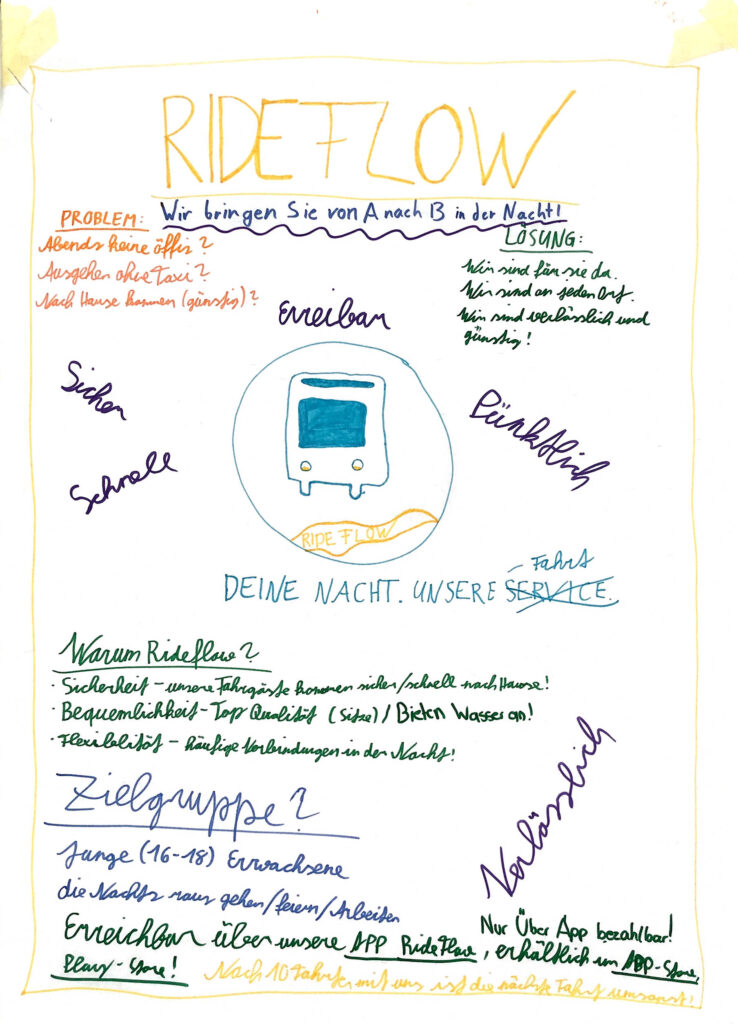 RIDEFLOW
Wir bringen Sie von A nach B in der Nacht!
PROBLEM:
Abends keine öffis?
Ausgehen ohne Taxi?
Nach Hause kommen (günstig)?
LÖSUNG:
Wir sind für sie da.
Wir sind an jeden Ort.
Wir sind verlässlich und
günstig!
Erreibar
Sicher
Schnell
Pünktlich
RIDE FLOW
DEINE NACHT. UNSERE SERVICE.
- Fahrt
Warum Rideflow?
· Sicherheit - unsere Fahrgäste kommen sicher/schnell nach Hause!
· Bequemlichkeit - Top Qualität (Sitze) / Bieten Wasser an!
· Flexibelität - häufige Verbindungen in der Nacht!
Verlässlich
Zielgruppe?
Junge (16-18) Erwachsene
die Nachts raus gehen/feiern/Arbeiten
Nur Über App bezahlbar!
Erreichbar über unsere APP RideFlow, erhältlich im APP-Store,
Play-Store!
Nach 10 Fahrten mit uns ist die nächste Fahrt umsonst!